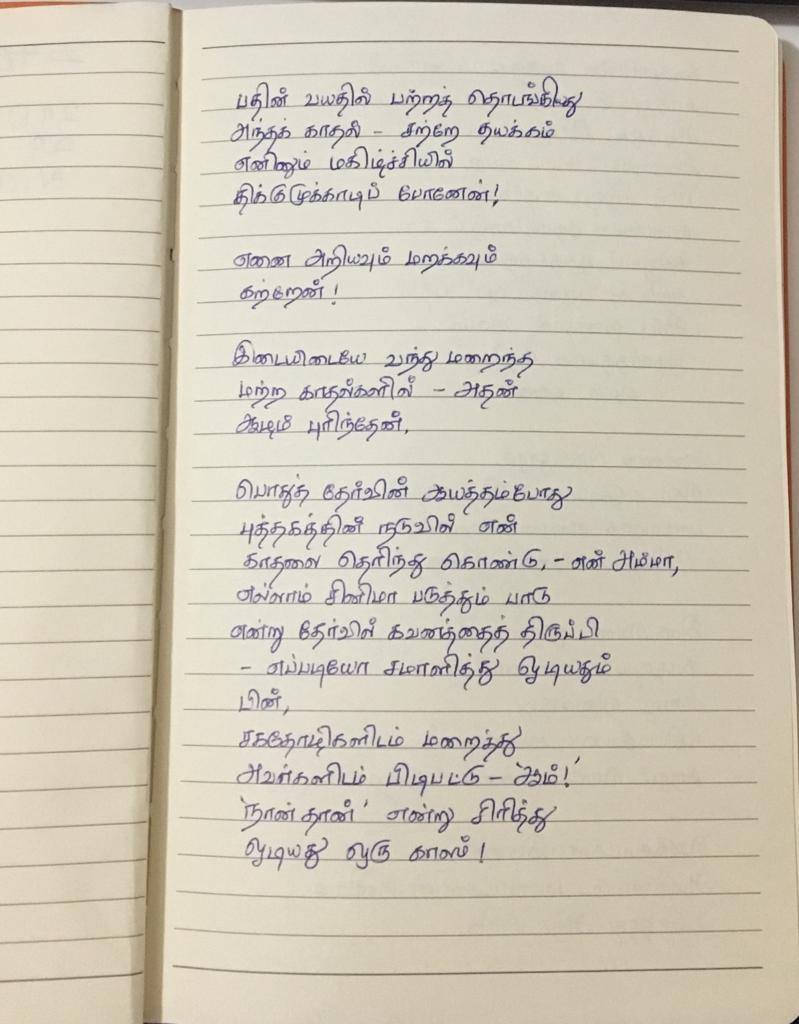 பதின் வயதில் பற்றத் தொடங்கியது
அந்தக் காதல் - சற்றே தயக்கம்
எனினும் மகிழ்ச்சியில்
திக்குமுக்காடிப் போனேன்!
எனை அறியவும் மறக்கவும்
கற்றேன்!
இடையிடையே வந்து மறைந்த
மற்ற காதல்களில் - அதன்
ஆழம் புரிந்தேன்.
பொதுத் தேர்வின் ஆயத்தம்போது
புத்தகத்தின் நடுவில் என்
காதலை தெரிந்து கொண்டு, - என் அம்மா,
எல்லாம் சினிமா படுத்தும் பாடு
என்று தேர்வில் கவனத்தைத் திருப்பி
- எப்படியோ சமாளித்து ஓடியதும்
பின்,
சகதோழிகளிடம் மறைத்து
அவர்களிடம் பிடிபட்டு - 'ஆம்!'
'நான் தான்' என்று சிரித்து
ஓடியது ஒரு காலம்!